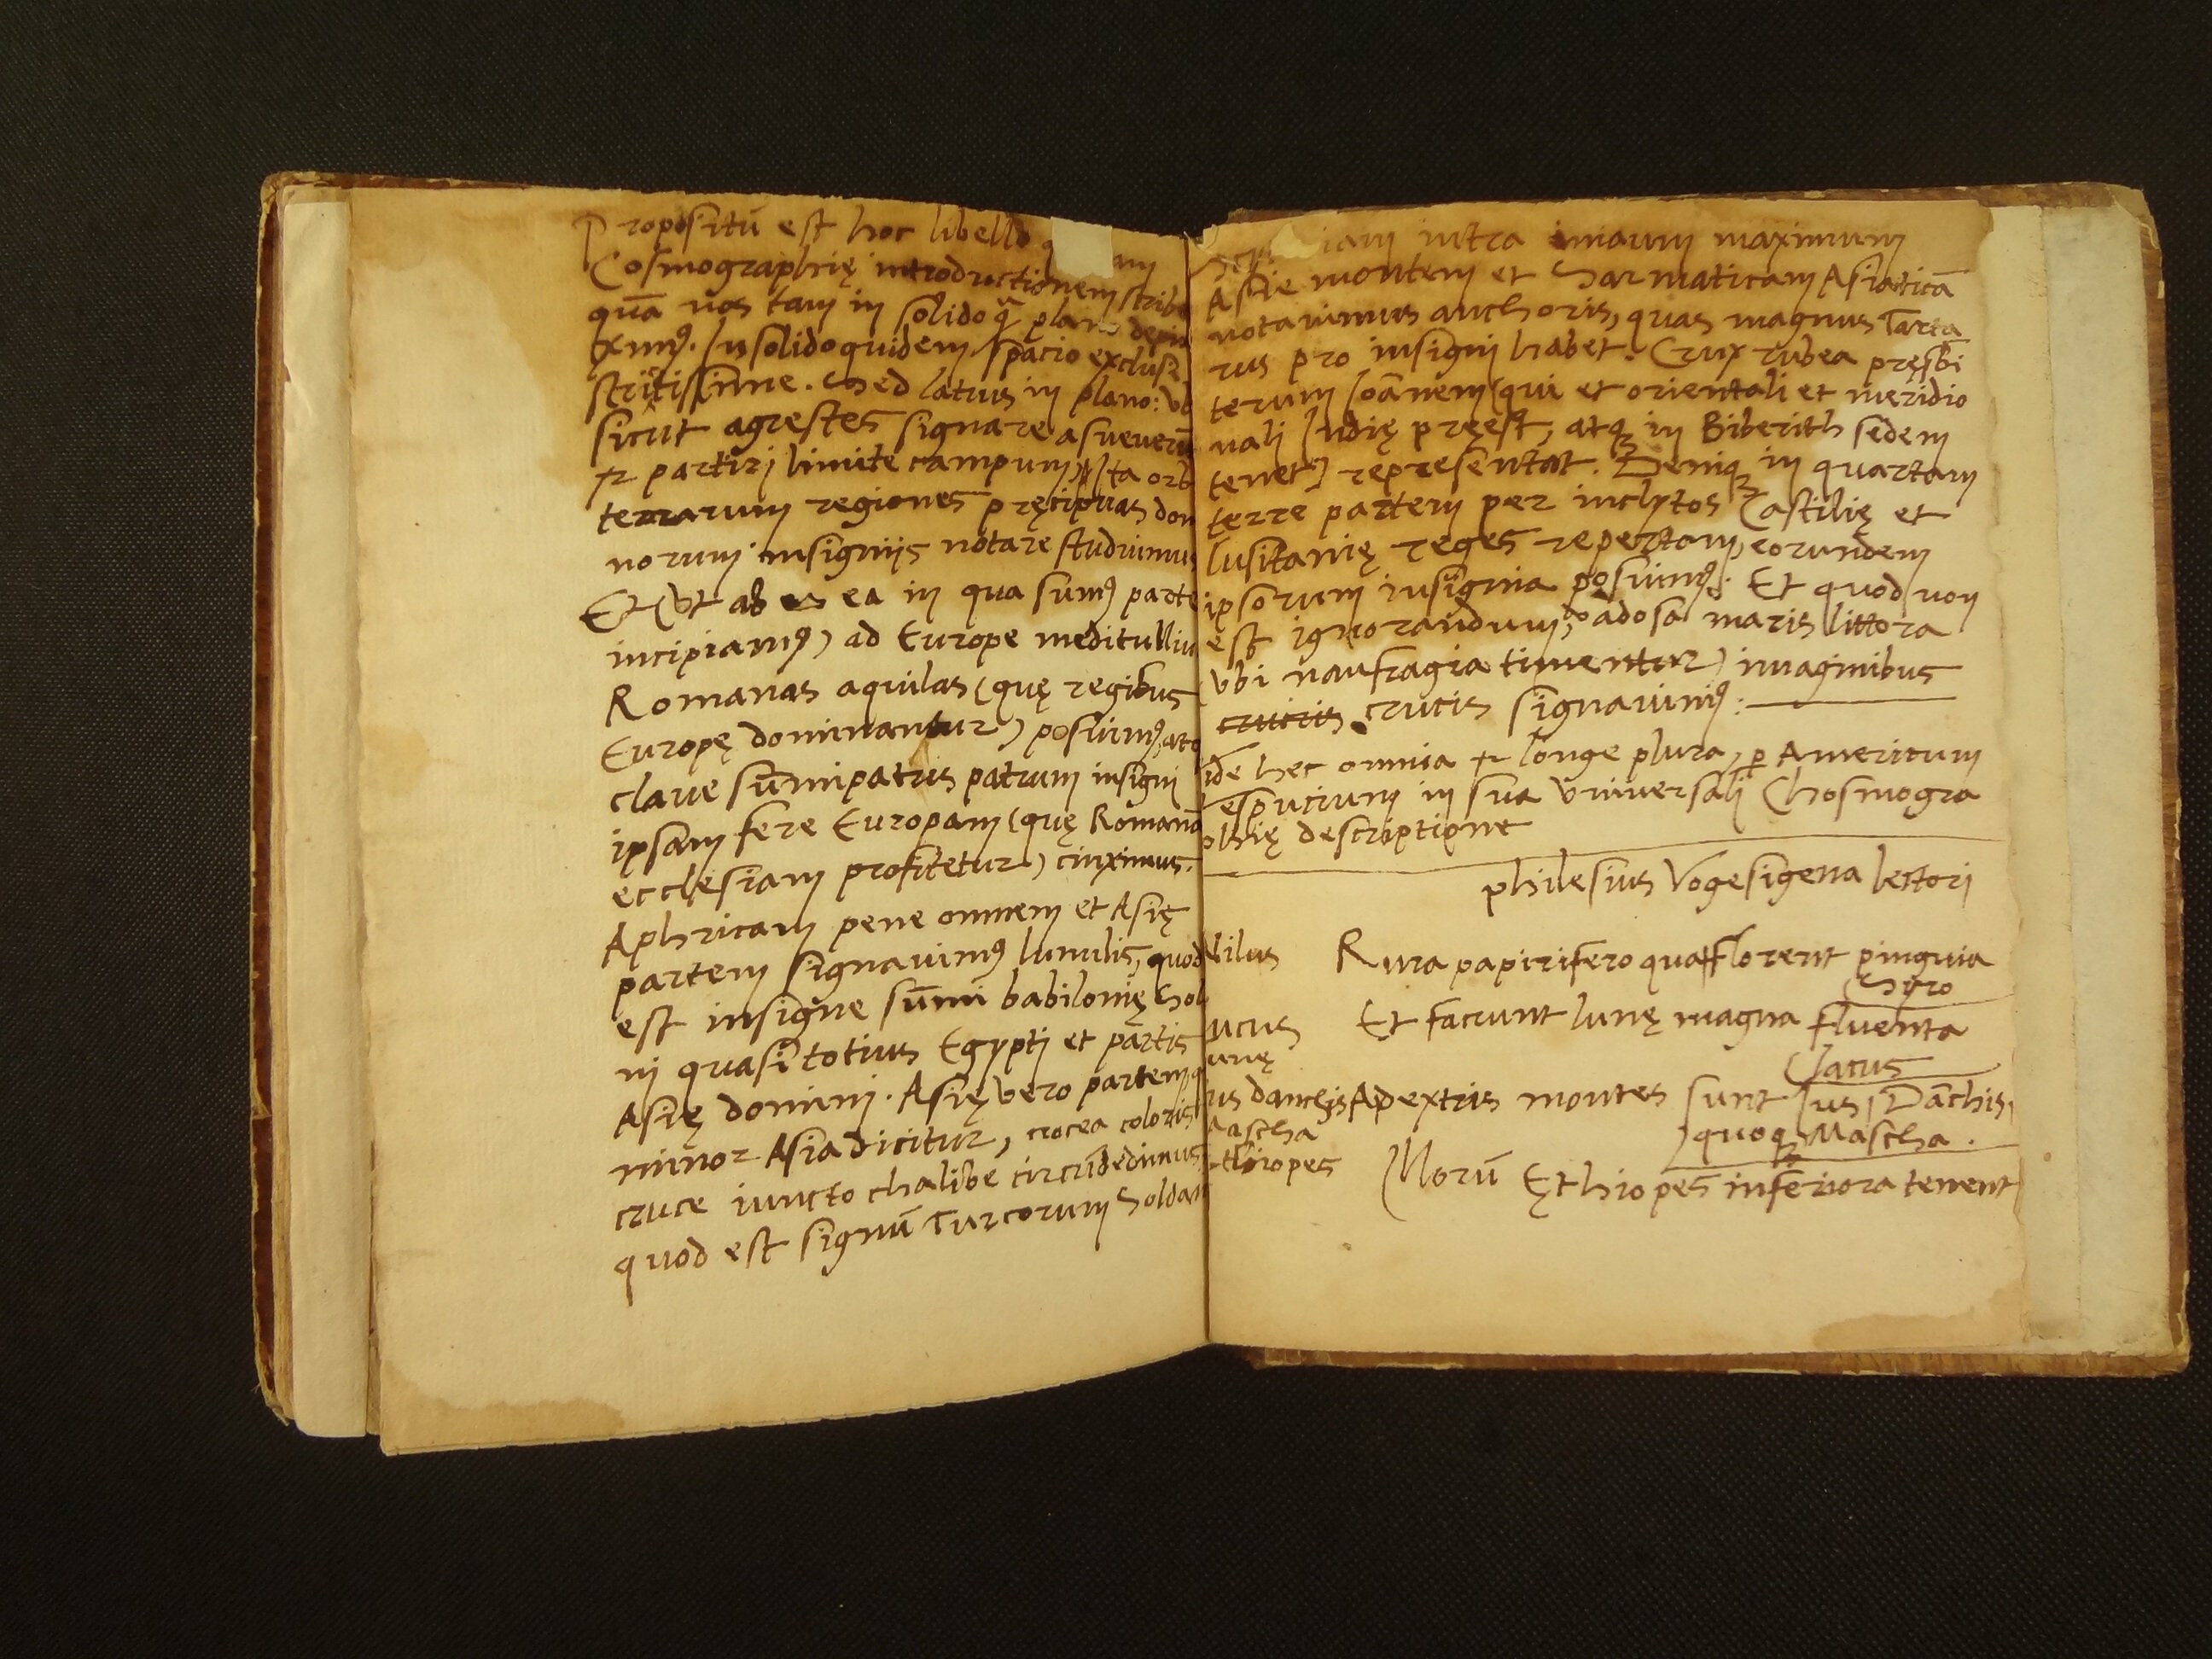 Propositū est hoc libello
Cosmographię introductionem scribe
quā nos tam in solido q̄ plano depin
ximꝰ. In solido quidem spacio exclusi
strictissime. Sed latius in plano: vt
sicut agrestes signare asueuerūt
et partiri limite campum, Ita orb
terrarum regiones pręcipuas domi
norum insignijs notare studuimus
Et (vt ab ea in qua sumꝰ parte
incipiamꝰ) ad Europe meditulliu
Romanas aquilas (quę regibus
Europę dominantur) posuimꝰ, atq
claue sūmi patris patrum insigni
ipsam fere Europam (quę Romanā
ecclesiam profitetur) cinximus.
Aphricam pene omnem et Asię
partem signauimꝰ lunulis, quod
est insigne sūmi babilonię Sol
ni quasi totius Egypti et partis
Asię domini. Asię vero partem q
minor Asia dicitur, crocea coloris
cruce iuncto chalibe circūdedimus
quod est signū Turcorum Soldan
iam intra imaum maximum
Asie montem et Sarmaticam Asiaticā
notauimus anchoris, quas magnus Tarta
rus pro insigni habet. Crux rubea pręsbi
terum Ioānem (qui et orientali et meridio
nali Indię pręest, atqꝫ in Biberith sedem
tenet) representat. Deniqꝫ in quartam
terre partem per inclytos Castilię et
Lusitanię reges repertam, eorundem
ipsorum insignia posuimꝰ. Et quod non
est ignorandum, vadosa maris littora
(vbi naufragia timentur) imaginibus
crucis crucis signauimꝰ:
ide hec omnia et longe plura, ꝑ Americum
espucium in sua vniuersali Chosmogra
phię descriptione
philesius Vogesigena lectori
Nilus Rura papirifero qua florent pinguia
Syro
ucus Et faciunt lunę magna fluenta
unę lacus
ius danchis A dextris montes sunt Ius, Dāchis,
Mascha quoqꝫ Mascha.
Ethiopes Illorū Ęthiopes inferiora tenent